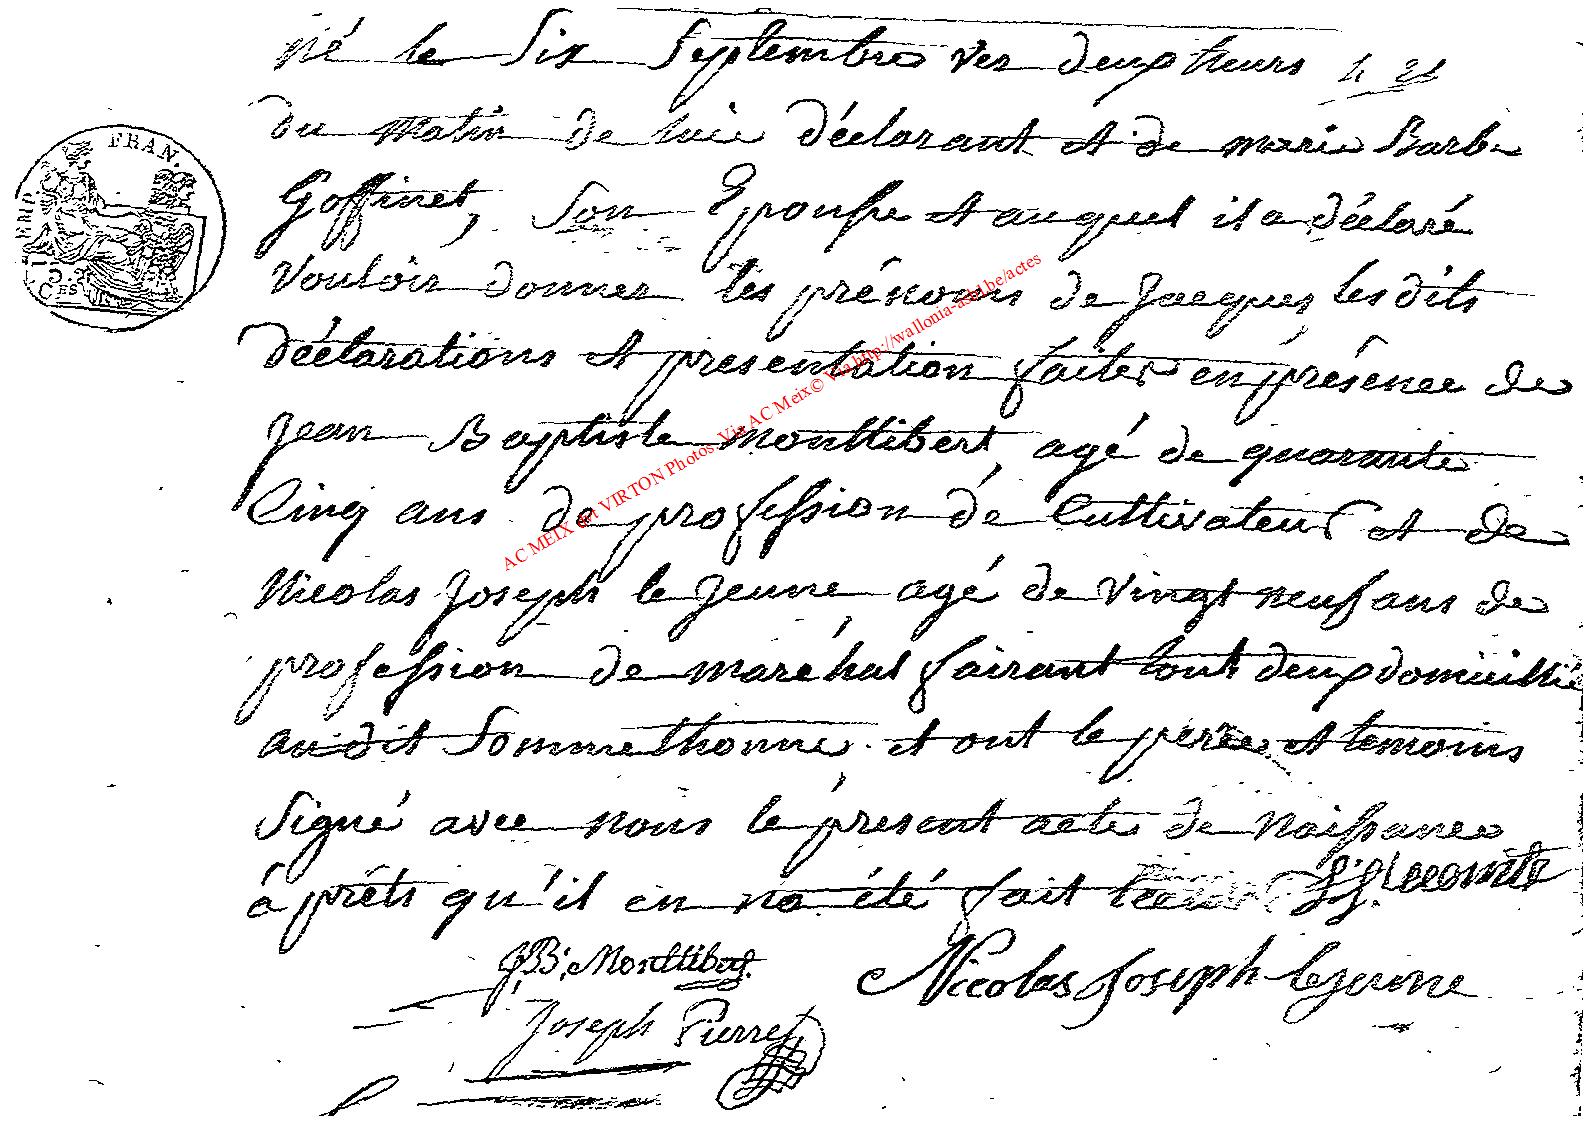 né le six septembre ver deux heurs
du matin de luie déclarant et de marie Barbe
Goffinet, son Epousse et auquel il a déclaré
vouloir donner les prénoms de Jacques les dits
déclarations et presentation faites en présence de
jean Baptiste Montlibert, agé de quarante
Cinq ans de profession de Cultivateur et de
Nicolas Joseph le jeune, agé de vingt neuf ans de
profession de maréhal fairant tout deux domicillié
au dit Sommethonne et ont le perre et temoins
signé avec nous le présent acte de naissance
á préts qu'il en na été fait
J.J. Lecomte
JB. Montlibert
Nicolas Joseph lejeune
Joseph Pierret
EMP. FRAN.
AC MEIX dvt VIRTON Photos Via AC Meix© Via http://wallonia-asbl.be/actes